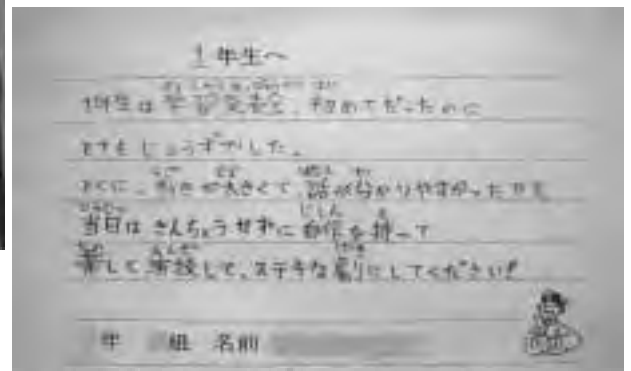 1年生へ
1年生は学習発表会、初めてだったのに
とてもじょうずでした。
とくに、動きが大きくて、話が分かりやすかったです
当日はきんちょうせずに自信を持って
して 練して、ステキな劇にしてください!
年 組 名前